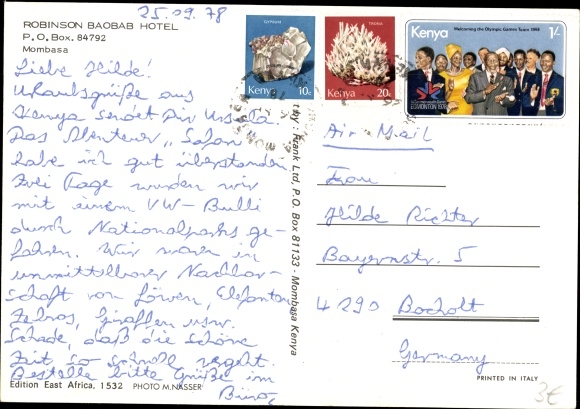 25.09.78
ROBINSON BAOBAB HOTEL
P.O. Box. 84792
Mombasa
Liebe Hilde!
Urlaubsgrüße aus
Kenya sendet Dir Ursula.
Das Abenteuer „Safari
habe ich gut überstanden
Zwei Tage wurden wir
mit einem VW-Bulli
durch Nationalparks ge-
fahren. Wir waren in
unmittelbarer Nachbar-
schaft von Löwen, Elefanten
Zebras, Giraffen usw.
Schade, daß die schöne
Zeit so schnell vergeht.
Bestelle bitte Grüße im
Büro
Edition East Africa. 1532 PHOTO M.NASSER
by: Frank Ltd, P.O. Box 81133 - Mombasa Kenya
GYPSUM
Kenya 10c
TRONA
Kenya 20c
Welcoming the Olympic Games Team 1968
Kenya 1/-
EDMONTON 1978
Air Mail
Frau
Hilde Richter
Bayernstr. 5
4290 Bocholt
Germany
PRINTED IN ITALY
3€